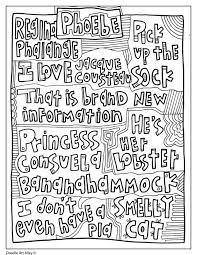 Regina Phalange
Phoebe
Pick up the Sock
I love Jacque Cousteau
That is brand new information
He's her Lobster
Princess Consuela
Bananahammock
I don't even have a pla
Smelly Cat
Doodle Art Alley ©